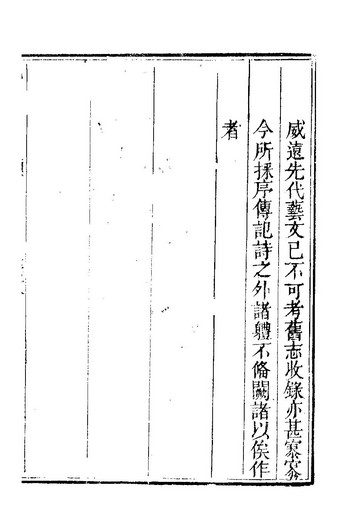 威遠先代藝文已不可考舊志收錄亦甚寥寥
今所採序傳記詩之外諸軆不備闕諸以俟作
者